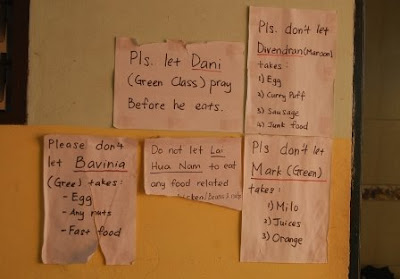 Pls. let Dani
(Green Class) pray
Before he eats.
Pls. don't let
Divendran (Maroon)
takes:
1) Egg
2) Curry Puff
3) Sausage
4) Junk food
Please don't
let Bavinia
(Gree) takes:
- Egg
- Any nuts
- Fast food
Do not let Lai
Hua Nam to eat
any food related
Pls don't let
Mark (Green)
takes:
1) Milo
2) Juices
3) Orange